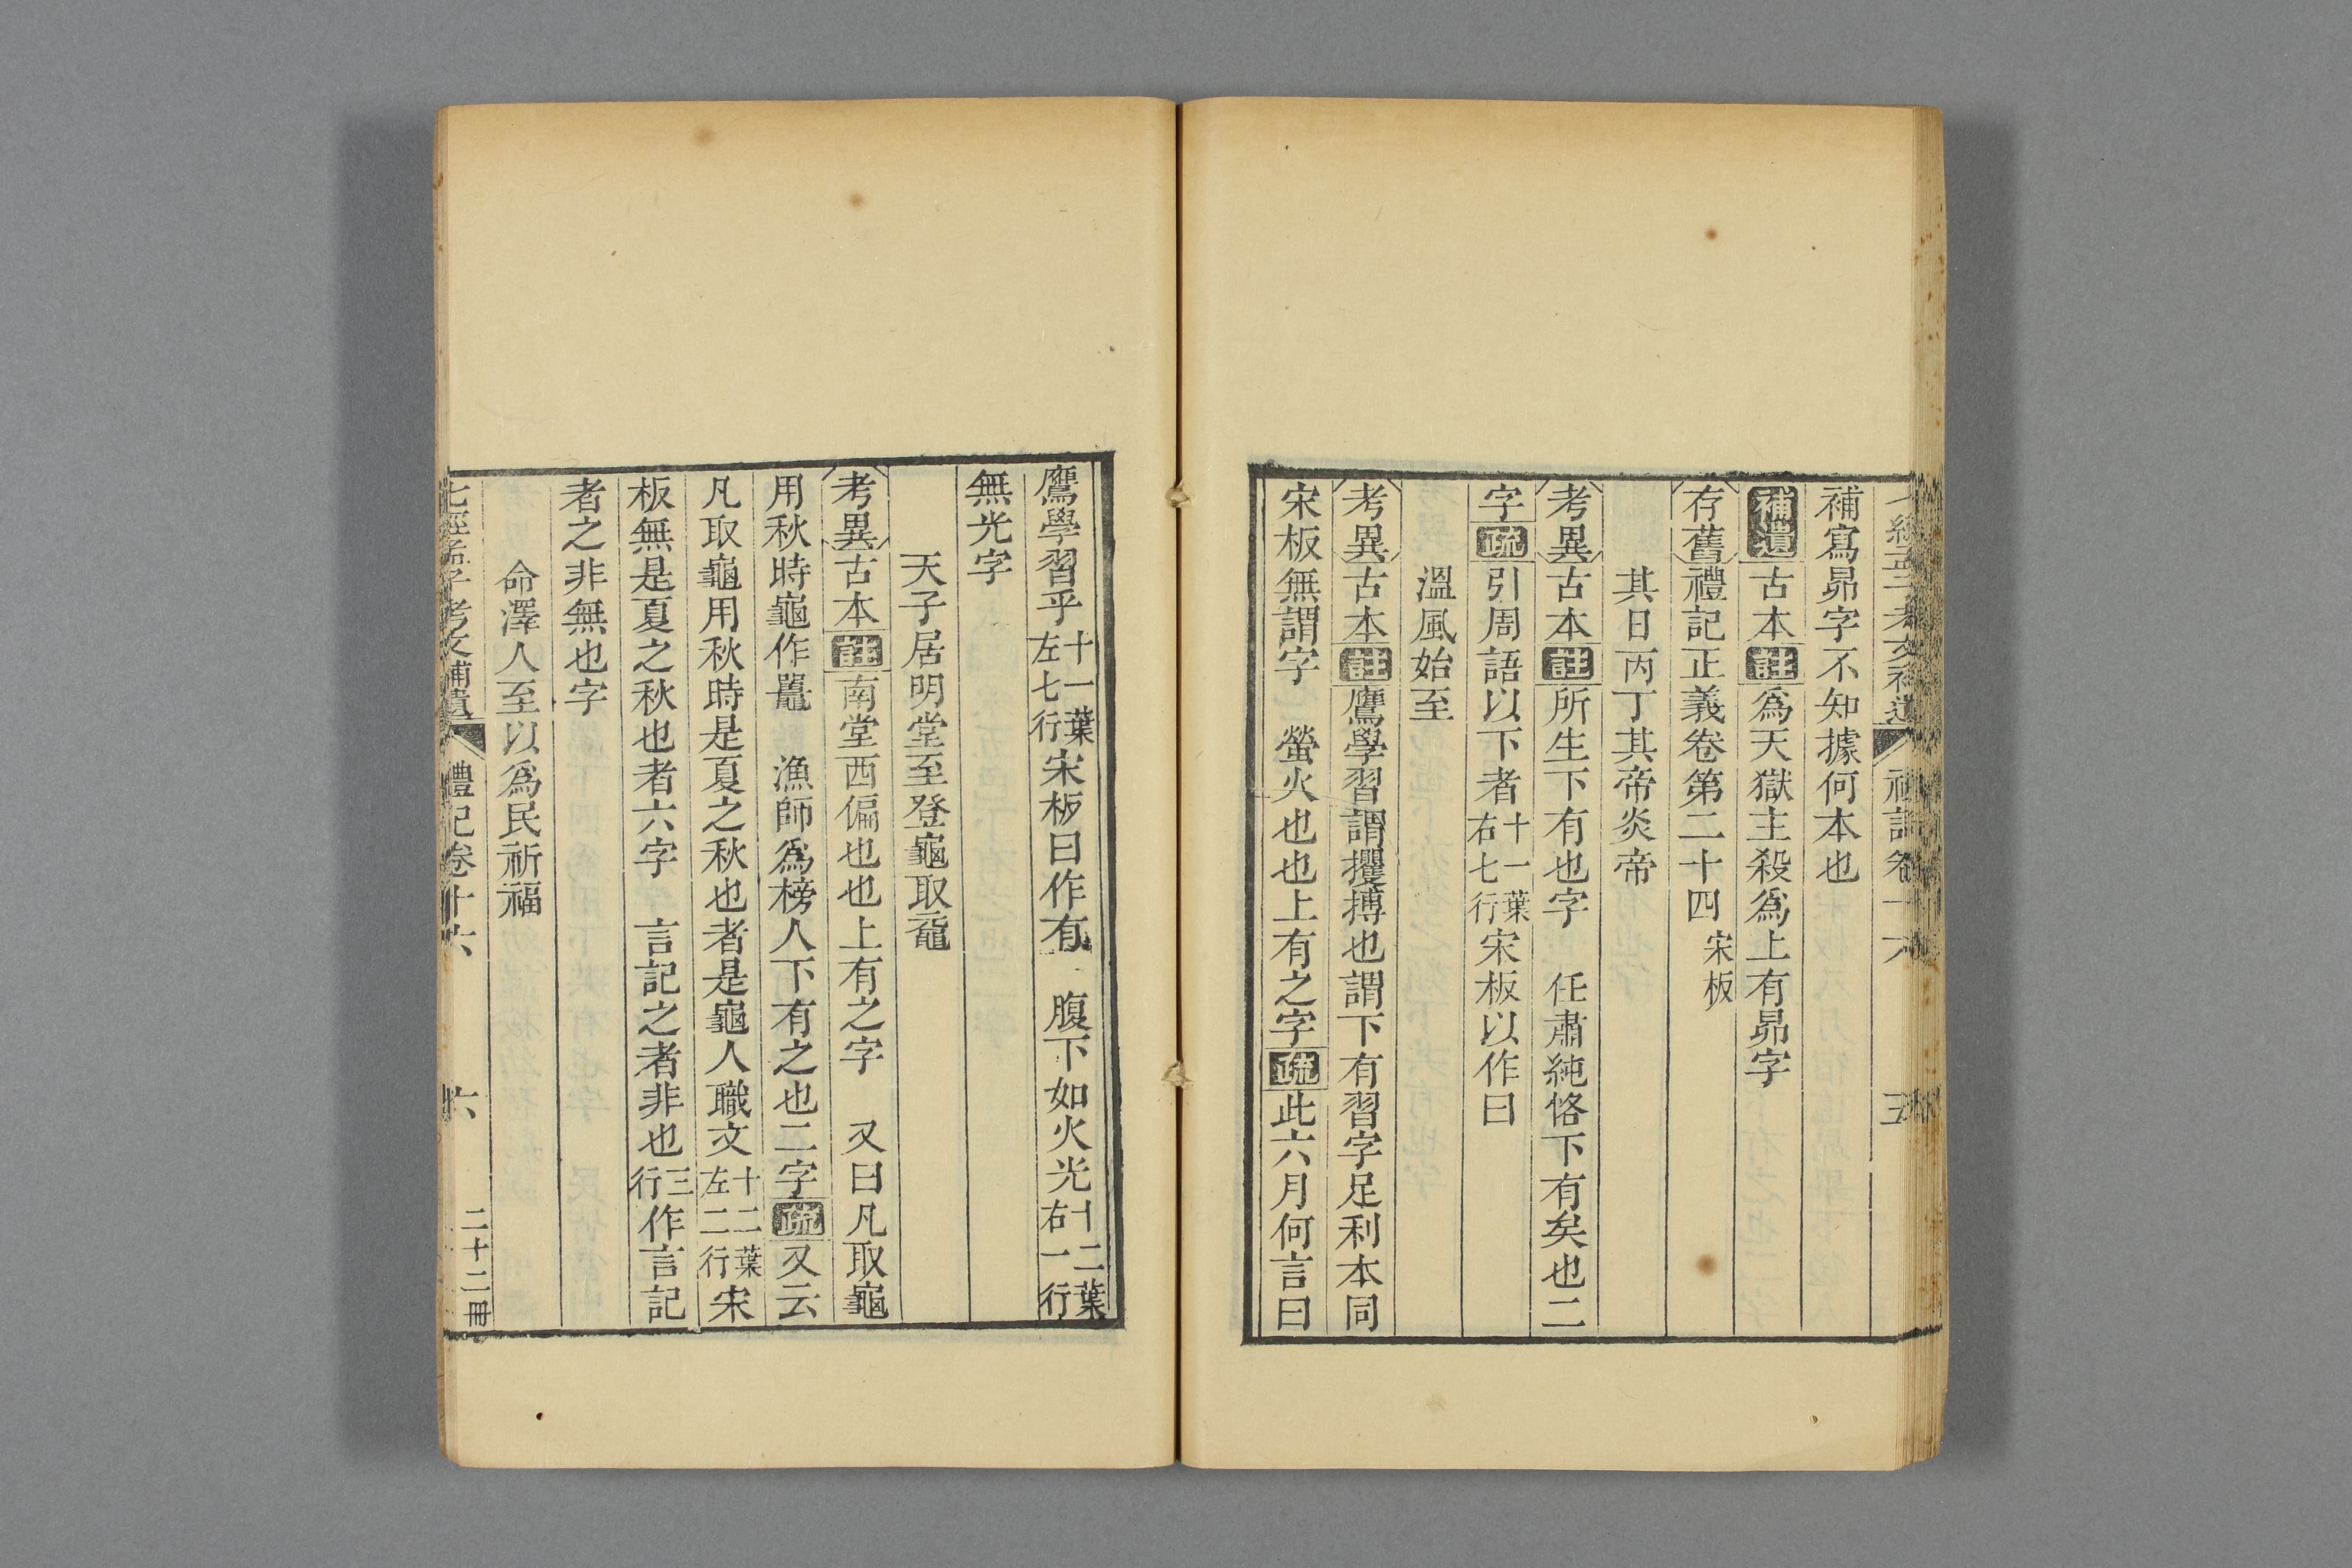 七經孟子考文補遺 禮記卷十六 五
補寫昴字不知據何本也
補遺古本註為天獄主殺為上有昴字
存舊禮記正義卷第二十四宋板
其日丙丁其帝炎帝
考異古本註所生下有也字 任肅純恪下有矣也二
字疏引周語以下者十一葉右七行宋板以作曰
溫風始至
考異古本註鷹學習謂攫搏也謂下有習字足利本同
宋板無謂字 螢火也也上有之字疏此六月何言曰
鷹學習乎十一葉左七行宋板曰作有 腹下如火光十二葉右一行
無光字
天子居明堂至登龜取黿
考異古本註南堂西偏也也上有之字 又曰凡取龜
用秋時龜作鼂 漁師為榜人下有之也二字疏又云
凡取龜用秋時是夏之秋也者是龜人職文十二葉左二行宋
板無是夏之秋也者六字 言記之者非也三行作言記
者之非無也字
命澤人至以為民祈福
七經孟子考文補遺 禮記卷十六 六 二十二冊